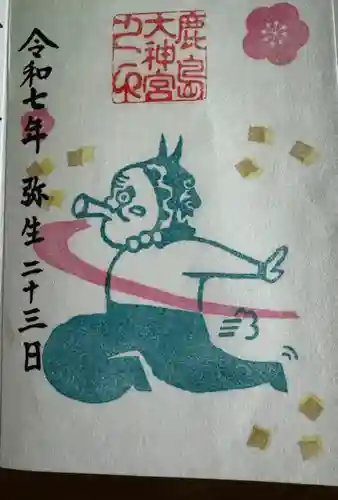 鹿島
大神宮
令和七年 弥生 二十三日